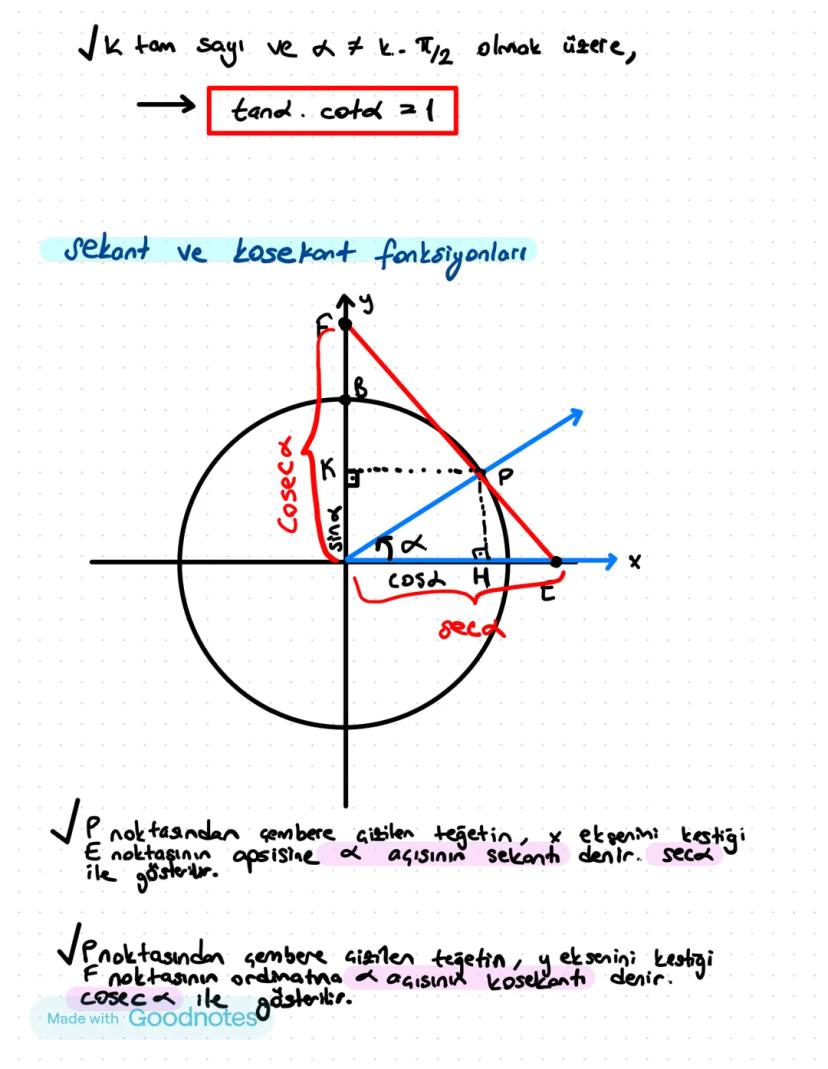 √ K tam sayı ve α ≠ k. π/2 olmak üzere,
→ tanα . cotα = 1
sekant ve kosekant fonksiyonları
y
F
B
cosec α
K
P
sinα
α
x
cosα
H
E
secα
√ P noktasından çembere çizilen teğetin, x eksenini kestiği
E noktasının apsisine α açısının sekantı denir. secα
ile gösterilir.
√ P noktasından çembere çizilen teğetin, y eksenini kestiği
F noktasının ordinatına α açısının kosekantı denir.
cosec α ile gösterilir.
Made with Goodnotes